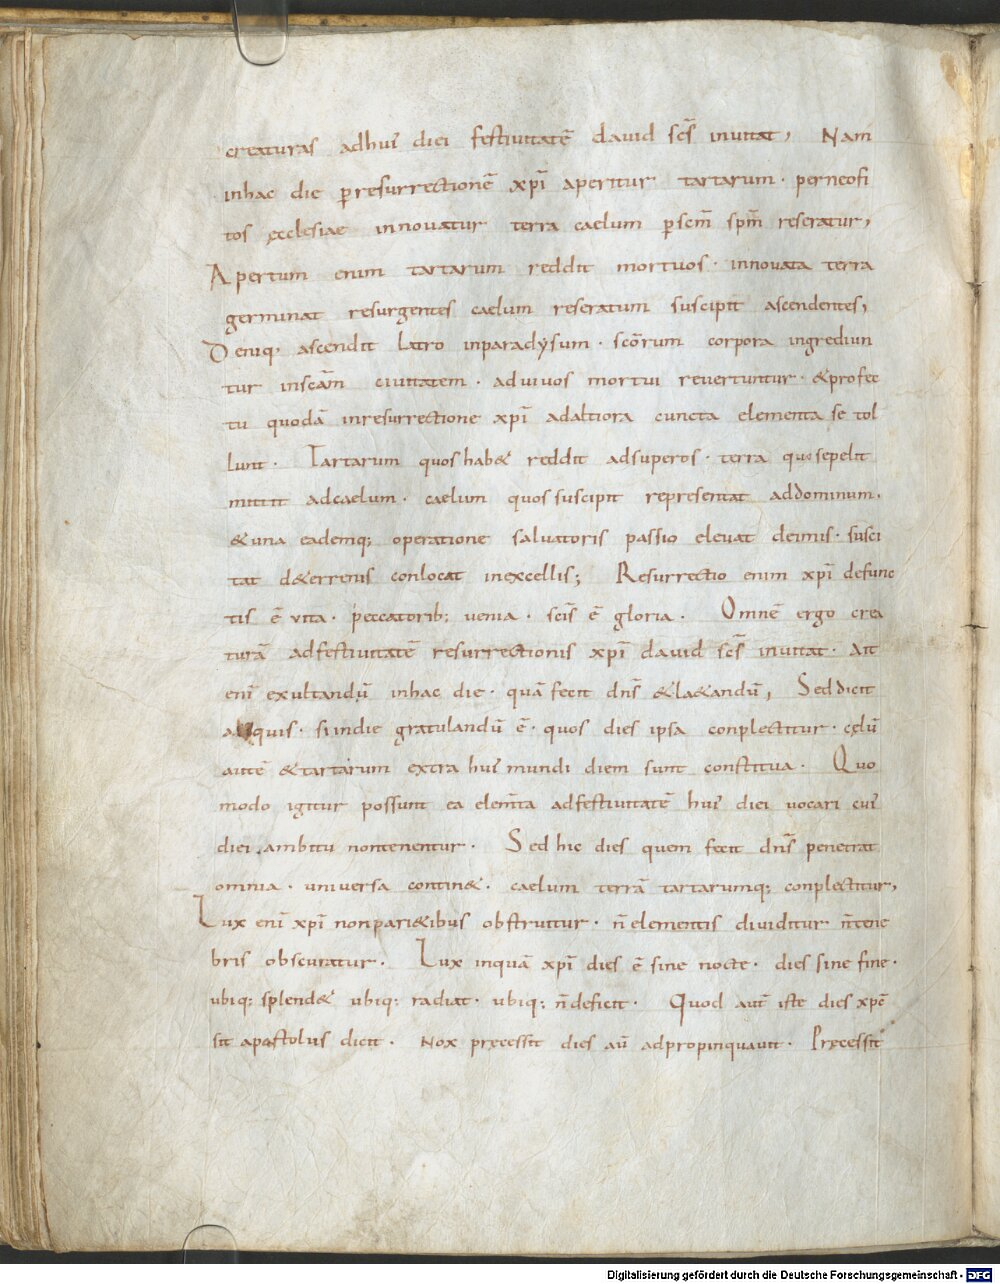 creaturas adhui᾽ diei festiuitatē dauid scs̄ inuitat, Nam
inhac die ꝑresurrectionē xp̄i aperitur tartarum · perneofi
tos ęcclesiae innouatur terra caelum ꝑscm̄ spm̄ reseratur,
Apertum enim tartarum reddit mortuos · innouata terra
germinat resurgentes caelum reseratum suscipit ascendentes,
Deniq, ascendit latro inparadysum · scōrum corpora ingrediun
tur inscām ciuitatem · aduiuos mortui reuertuntur · &profec
tu quodā inresurrectione xp̄i adaltiora cuncta elementa se tol
lunt · Tartarum quos hab& reddit adsuperos · terra quos sepelit
mittit adcaelum · caelum quos suscipit representat addominum,
&una eademq; operatione saluatoris passio eleuat deimis · susci
tat d&errenis conlocat inexcelsis; Resurrectio enim xp̄i defunc
tis ē uita · peccatorib; uenia · scis̄ ē gloria · Omnē ergo crea
turā adfestiuitatē resurrectionis xp̄i dauid scs̄ inuitat · Ait
enī exultandū inhac die · quā fecit dns̄ &la&andū, Sed dicit
aliquis · si indie gratulandū ē · quos dies ipsa conplectitur · cęlū
autē &tartarum extra hui᾽ mundi diem sunt constituta · Quo
modo igitur possunt ea elem̄ta adfestiuitatē hui᾽ diei uocari cui᾽
diei ambitu nontenentur · Sed hic dies quem fecit dns̄ penetrat
omnia · uniuersa contin& · caelum terrā tartarumq; conplectitur,
Lux enī xp̄i nonpari&ibus obstruitur · n̄ elementis diuiditur n̄tene
bris obscuratur · Lux inquā xp̄i dies ē sine nocte · dies sine fine ·
ubiq; splend& ubiq; radiat · ubiq; n̄deficit · Quod aut̄ iste dies xpc̄
sit apostolus dicit · Nox pręcessit dies aū adpropinquauit · Pręcessit
Digitalisierung gefördert durch die Deutsche Forschungsgemeinschaft - DFG